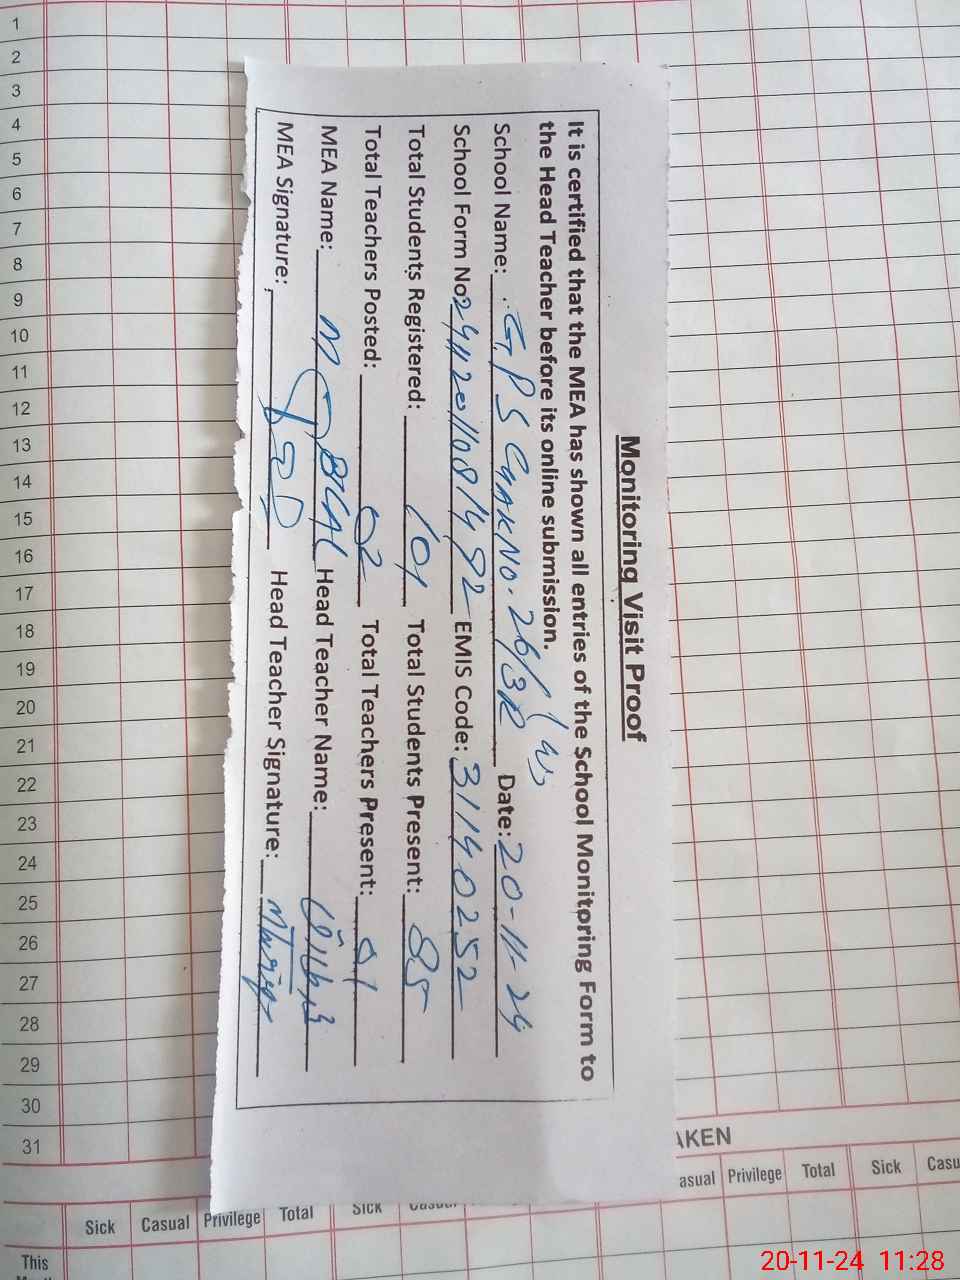 Monitoring Visit Proof
It is certified that the MEA has shown all entries of the School Monitoring Form to
the Head Teacher before its online submission.
School Name: G.P.S Chak No. 26/3R (W) Date: 20-11-24
School Form No 24112011081492 EMIS Code: 31140252
Total Students Registered: 101 Total Students Present: 85
Total Teachers Posted: 02 Total Teachers Present: 01
MEA Name: M Head Teacher Name:
MEA Signature: Head Teacher Signature:
1
2
3
4
5
6
7
8
9
10
11
12
13
14
15
16
17
18
19
20
21
22
23
24
25
26
27
28
29
30
31
AKEN
Sick Casual Privilege Total Sick Casual asual Privilege Total Sick Casu
This
20-11-24 11:28